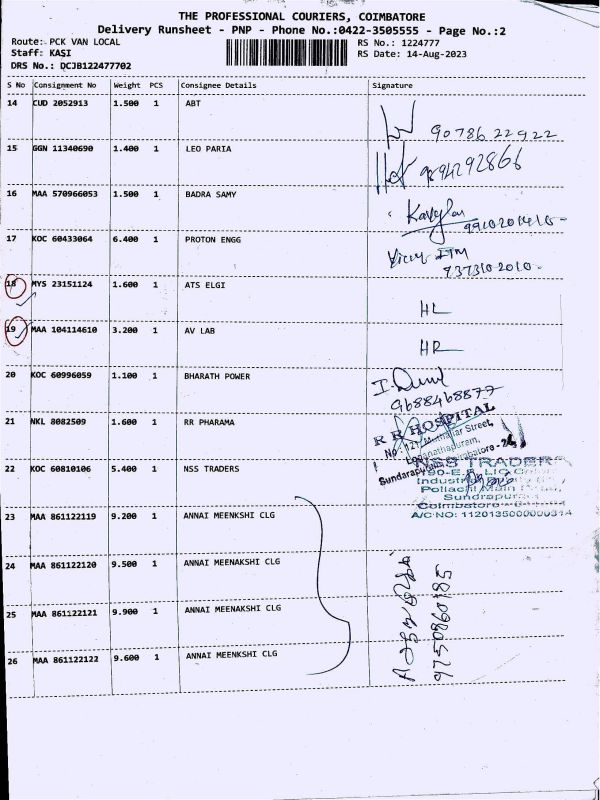 THE PROFESSIONAL COURIERS, COIMBATORE
Delivery Runsheet - PNP - Phone No.:0422-3505555 - Page No.:2
Route: PCK VAN LOCAL RS No.: 1224777
Staff: KASI RS Date: 14-Aug-2023
DRS No.: DCJB122477702
S No Consignment No Weight PCS Consignee Details Signature
14 CUD 2052913 1.500 1 ABT
9078622922
15 GGN 11340690 1.400 1 LEO PARIA
9894292866
16 MAA 570966053 1.500 1 BADRA SAMY
17 KOC 60433064 6.400 1 PROTON ENGG
7373102010
18 MYS 23151124 1.600 1 ATS ELGI
HL
19 MAA 104114610 3.200 1 AV LAB
HR
20 KOC 60996059 1.100 1 BHARATH POWER
9688468877
21 NKL 8082509 1.600 1 RR PHARAMA
R R HOSPITAL
Street,
Loganathapuram,
Sundarapuram, Coimbatore - 24
22 KOC 60810106 5.400 1 NSS TRADERS
NSS TRADERS
Pollachi Main Road,
Sundrapuram
Coimbatore
A/C NO: 1120135000000314
23 MAA 861122119 9.200 1 ANNAI MEENKSHI CLG
24 MAA 861122120 9.500 1 ANNAI MEENAKSHI CLG
25 MAA 861122121 9.900 1 ANNAI MEENAKSHI CLG
26 MAA 861122122 9.600 1 ANNAI MEENKSHI CLG